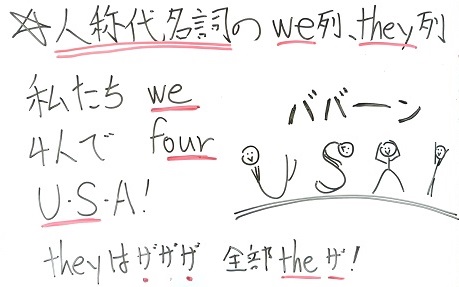 ☆人称代名詞の we列、they列
私たち we
4人で four
U・S・A!
ババーン
USA!
theyはザザザ 全部theザ!